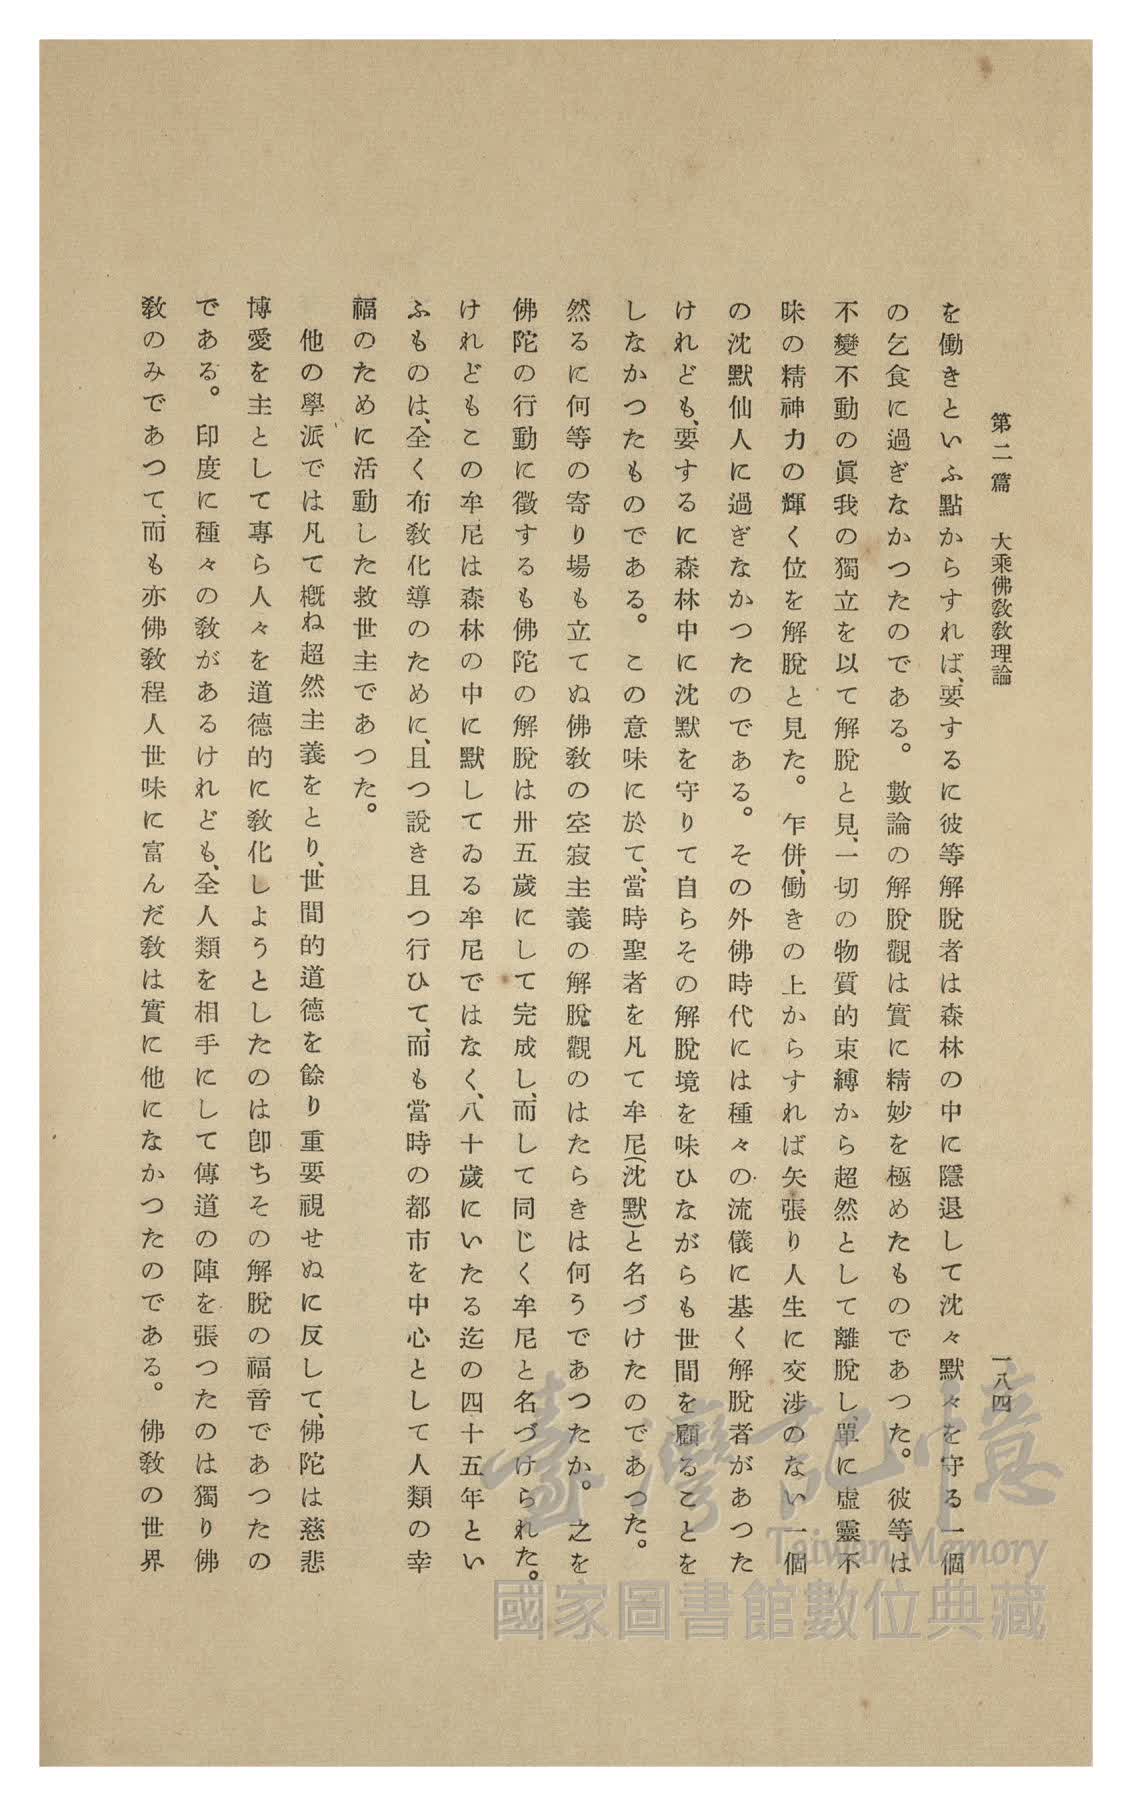 第二篇　大乘佛敎敎理論　一八四
を働きといふ點からすれば、要するに彼等解脫者は森林の中に隱退して沈々默々を守る一個
の乞食に過ぎなかつたのである。數論の解脫觀は實に精妙を極めたものであつた。彼等は
不變不動の眞我の獨立を以て解脫と見、一切の物質的束縛から超然として離脫し、單に虛靈不
昧の精神力の輝く位を解脫と見た。乍併、働きの上からすれば矢張り人生に交涉のない一個
の沈默仙人に過ぎなかつたのである。その外佛時代には種々の流儀に基く解脫者があつた
けれども、要するに森林中に沈默を守りて自らその解脫境を味ひながらも世間を顧ることを
しなかつたものである。この意味に於て、當時聖者を凡て牟尼(沈默)と名づけたのであつた。
然るに何等の寄り場も立てぬ佛敎の空寂主義の解脫觀のはたらきは何うであつたか。之を
佛陀の行動に徵するも佛陀の解脫は卅五歲にして完成し、而して同じく牟尼と名づけられた。
けれどもこの牟尼は森林の中に默してゐる牟尼ではなく、八十歲にいたる迄の四十五年とい
ふものは、全く布敎化導のために、且つ說き且つ行ひて、而も當時の都市を中心として人類の幸
福のために活動した救世主であつた。
他の學派では凡て槪ね超然主義をとり、世間的道德を餘り重要視せぬに反して、佛陀は慈悲
博愛を主として專ら人々を道德的に敎化しようとしたのは卽ちその解脫の福音であつたの
である。印度に種々の敎があるけれども、全人類を相手にして傳道の陣を張つたのは獨り佛
敎のみであつて、而も亦佛敎程人世味に富んだ敎は實に他になかつたのである。佛敎の世界
臺灣記憶
Taiwan Memory
國家圖書館數位典藏